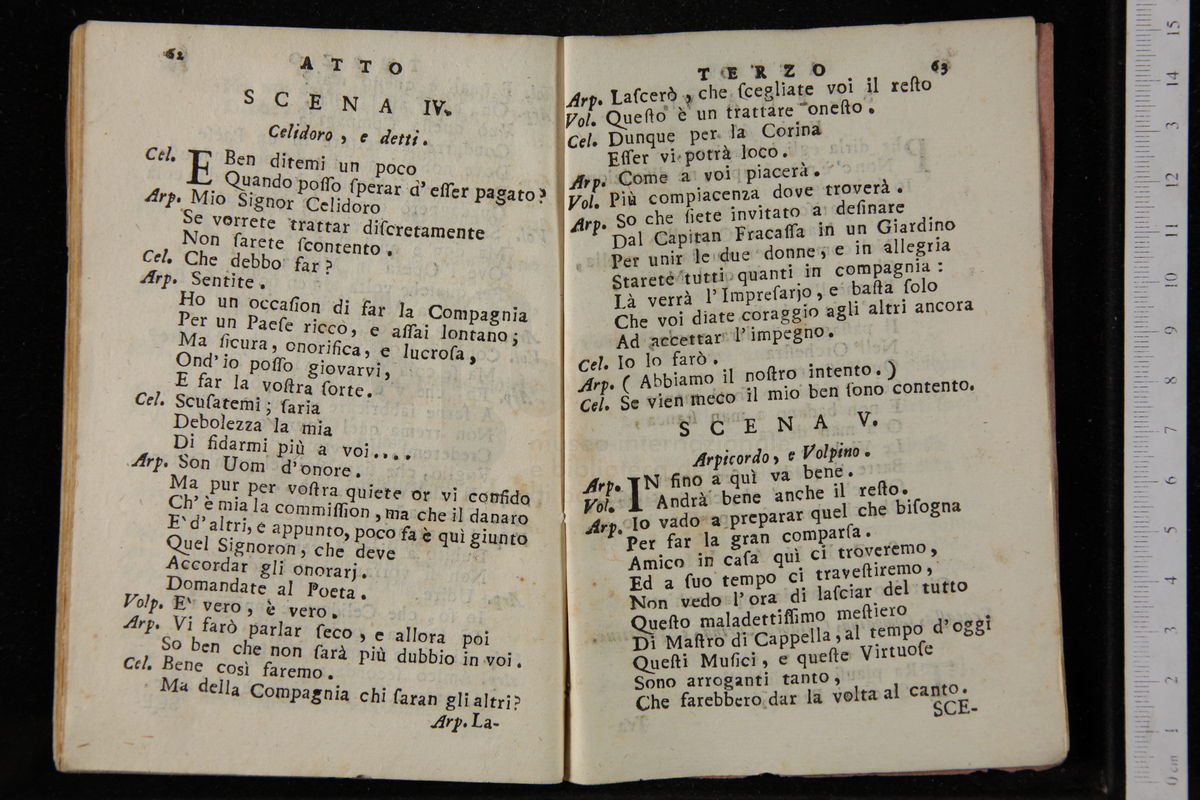 62
ATTO
SCENA IV.
Celidoro, e detti.
Cel. E Ben ditemi un poco
Quando poſſo ſperar d'eſſer pagato?
Arp. Mio Signor Celidoro
Se vorrete trattar diſcretamente
Non ſarete ſcontento.
Cel. Che debbo far?
Arp. Sentite.
Ho un occaſion di far la Compagnia
Per un Paeſe ricco, e aſſai lontano;
Ma ſicura, onorifica, e lucroſa,
Ond'io poſſo giovarvi,
E far la voſtra ſorte.
Cel. Scuſatemi; ſaria
Debolezza la mia
Di fidarmi più a voi....
Arp. Son Uom d'onore.
Ma pur per voſtra quiete or vi confido
Ch'è mia la commiſſion, ma che il danaro
E' d'altri, e appunto, poco fa è quì giunto
Quel Signoron, che deve
Accordar gli onorarj.
Domandate al Poeta.
Volp. E' vero, è vero.
Arp. Vi farò parlar ſeco, e allora poi
So ben che non ſarà più dubbio in voi.
Cel. Bene così faremo.
Ma della Compagnia chi ſaran gli altri?
Arp. La-
TERZO
63
Arp. Laſcerò, che ſcegliate voi il reſto
Vol. Queſto è un trattare oneſto.
Cel. Dunque per la Corina
Eſſer vi potrà loco.
Arp. Come a voi piacerà.
Vol. Più compiacenza dove troverà.
Arp. So che ſiete invitato a deſinare
Dal Capitan Fracaſſa in un Giardino
Per unir le due donne, e in allegria
Starete tutti quanti in compagnia:
Là verrà l'Impreſarjo, e baſta ſolo
Che voi diate coraggio agli altri ancora
Ad accettar l'impegno.
Cel. Io lo farò.
Arp. (Abbiamo il noſtro intento.)
Cel. Se vien meco il mio ben ſono contento.
SCENA V.
Arpicordo, e Volpino.
Arp. IN fino a quì va bene.
Vol. Andrà bene anche il reſto.
Arp. Io vado a preparar quel che biſogna
Per far la gran comparſa.
Amico in caſa quì ci troveremo,
Ed a ſuo tempo ci traveſtiremo,
Non vedo l'ora di laſciar del tutto
Queſto maladettiſſimo meſtiero
Di Maſtro di Cappella, al tempo d'oggi
Queſti Muſici, e queſte Virtuoſe
Sono arroganti tanto,
Che farebbero dar la volta al canto.
SCE-